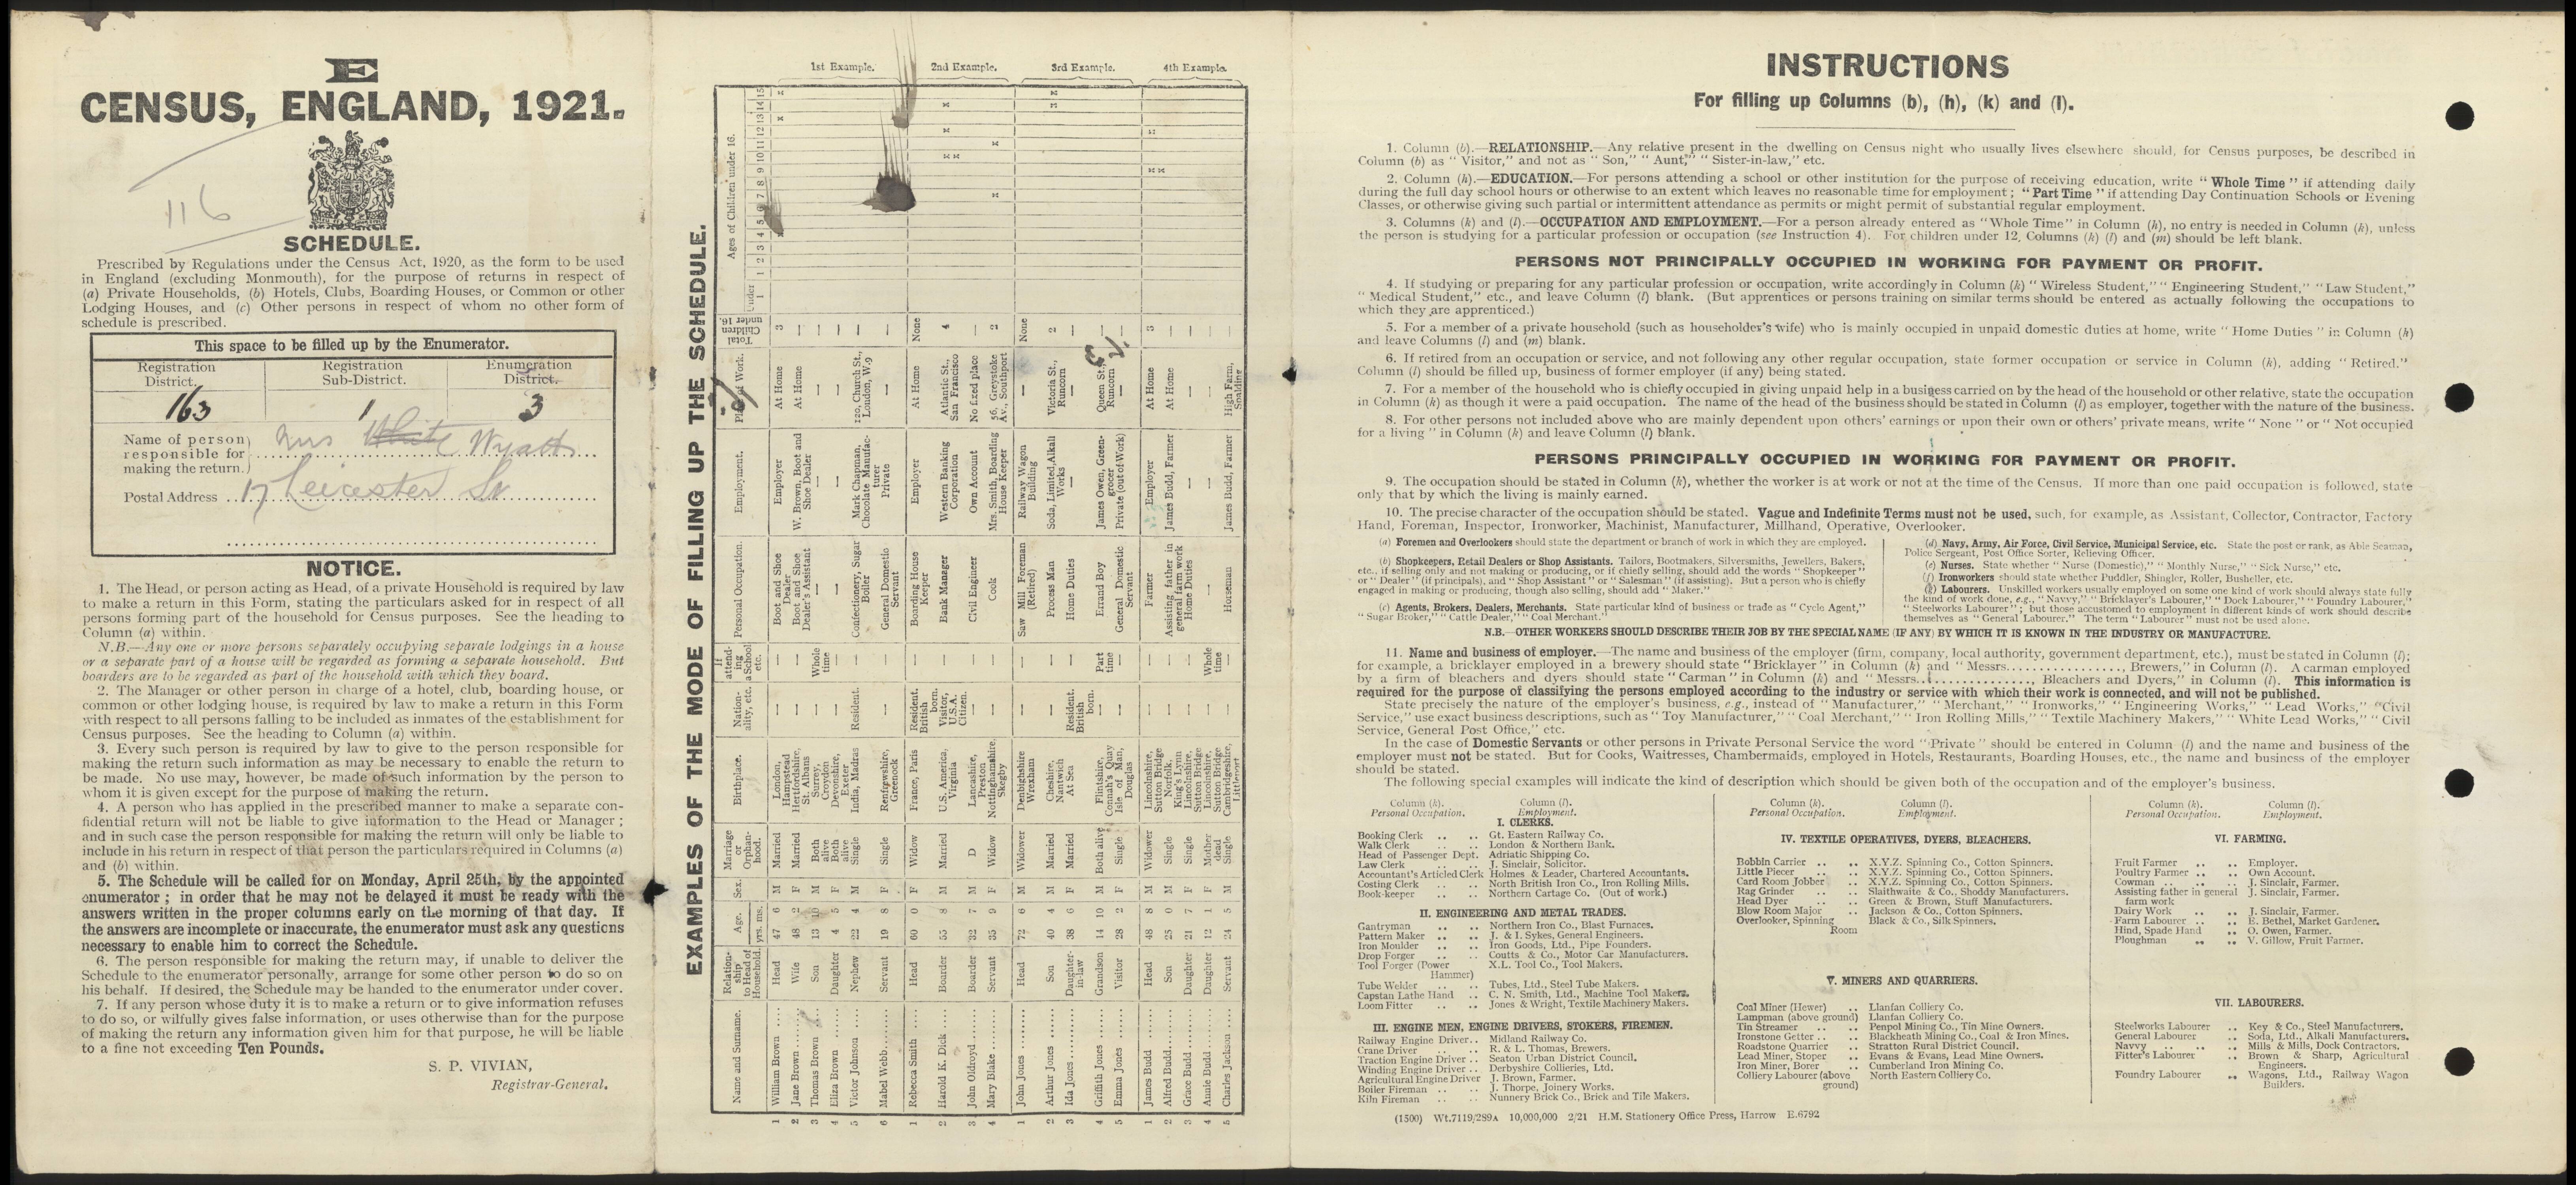 E
CENSUS, ENGLAND, 1921.
116
SCHEDULE.
Prescribed by Regulations under the Census Act, 1920, as the form to be used
in England (excluding Monmouth), for the purpose of returns in respect of
(a) Private Households, (b) Hotels, Clubs, Boarding Houses, or Common or other
Lodging Houses, and (c) Other persons in respect of whom no other form of
schedule is prescribed.
This space to be filled up by the Enumerator.
Registration District. Registration Sub-District. Enumeration District.
163 1 3
Name of person responsible for making the return. Mrs White Wyatt
Postal Address 17 Leicester St
NOTICE.
1. The Head, or person acting as Head, of a private Household is required by law
to make a return in this Form, stating the particulars asked for in respect of all
persons forming part of the household for Census purposes. See the heading to
Column (a) within.
N.B.—Any one or more persons separately occupying separate lodgings in a house
or a separate part of a house will be regarded as forming a separate household. But
boarders are to be regarded as part of the household with which they board.
2. The Manager or other person in charge of a hotel, club, boarding house, or
common or other lodging house, is required by law to make a return in this Form
with respect to all persons falling to be included as inmates of the establishment for
Census purposes. See the heading to Column (a) within.
3. Every such person is required by law to give to the person responsible for
making the return such information as may be necessary to enable the return to
be made. No use may, however, be made of such information by the person to
whom it is given except for the purpose of making the return.
4. A person who has applied in the prescribed manner to make a separate con-
fidential return will not be liable to give information to the Head or Manager ;
and in such case the person responsible for making the return will only be liable to
include in his return in respect of that person the particulars required in Columns (a)
and (b) within.
5. The Schedule will be called for on Monday, April 25th, by the appointed
enumerator ; in order that he may not be delayed it must be ready with the
answers written in the proper columns early on the morning of that day. If
the answers are incomplete or inaccurate, the enumerator must ask any questions
necessary to enable him to correct the Schedule.
6. The person responsible for making the return may, if unable to deliver the
Schedule to the enumerator personally, arrange for some other person to do so on
his behalf. If desired, the Schedule may be handed to the enumerator under cover.
7. If any person whose duty it is to make a return or to give information refuses
to do so, or wilfully gives false information, or uses otherwise than for the purpose
of making the return any information given him for that purpose, he will be liable
to a fine not exceeding Ten Pounds.
S. P. VIVIAN,
Registrar-General.
EXAMPLES OF THE MODE OF FILLING UP THE SCHEDULE.
Name and Surname. Relation-ship to Head of Household. Age. yrs. ms. Sex. Marriage or Orphan-hood. Birthplace. Nation-ality, etc. If attend-ing a School etc. Personal Occupation. Employment. Place of Work. Total Children under 16. Ages of Children under 16.
Under 1 1 2 3 4 5 6 7 8 9 10 11 12 13 14 15
1st Example.
1 William Brown Head 47 6 M Married London, Hampstead — — Boot and Shoe Dealer Employer At Home 3
2 Jane Brown Wife 48 2 F Married Hertfordshire, St. Albans — — Boot and Shoe Dealer's Assistant W. Brown, Boot and Shoe Dealer At Home —
3 Thomas Brown Son 13 10 M Both alive Surrey, Croydon — Whole time — — — —
4 Eliza Brown Daughter 4 5 F Both alive Devonshire, Exeter — — — — — —
5 Victor Johnson Nephew 22 4 M Single India, Madras Resident. — Confectionery, Sugar Boiler Mark Chapman, Chocolate Manufac-turer 120, Church St., London, W.9 —
6 Mabel Webb Servant 19 8 F Single Renfrewshire, Greenock — — General Domestic Servant Private — —
2nd Example.
1 Rebecca Smith Head 60 0 F Widow France, Paris Resident. British born. — Boarding House Keeper Employer At Home None
2 Harold K. Dick Boarder 55 8 M Married U.S. America, Virginia Visitor, U.S.A. Citizen. — Bank Manager Western Banking Corporation Atlantic St., San Francisco 4
3 John Oldroyd Boarder 32 7 M D Lancashire, Preston — — Civil Engineer Own Account No fixed place —
4 Mary Blake Servant 35 9 F Widow Nottinghamshire, Skegby — — Cook Mrs. Smith, Boarding House Keeper 56, Greystoke Av., Southport 2
3rd Example.
1 John Jones Head 72 6 M Widower Denbighshire Wrexham — — Saw Mill Foreman (Retired) Railway Wagon Building — None
2 Arthur Jones Son 40 4 M Married Cheshire, Nantwich — — Process Man Soda, Limited, Alkali Works Victoria St., Runcorn 2
3 Ida Jones Daughter-in-law 38 6 F Married At Sea Resident. British born. — Home Duties — — —
4 Griffith Jones Grandson 14 10 M Both alive Flintshire, Connah's Quay — Part time Errand Boy James Owen, Green-grocer Queen St., Runcorn —
5 Emma Jones Visitor 28 2 F Single Isle of Man, Douglas — — General Domestic Servant Private (out of Work) — —
4th Example.
1 James Budd Head 48 8 M Widower Lincolnshire, Sutton Bridge — — Farmer Employer At Home 3
2 Alfred Budd Son 25 0 M Single Norfolk, King's Lynn — — Assisting father in general farm work James Budd, Farmer At Home —
3 Grace Budd Daughter 21 7 F Single Lincolnshire, Sutton Bridge — — Home Duties — — —
4 Annie Budd Daughter 12 1 F Mother dead Lincolnshire, Sutton Bridge — Whole time — — — —
5 Charles Jackson Servant 24 5 M Single Cambridgeshire, Littleport — — Horseman James Budd, Farmer High Farm, Spalding —
INSTRUCTIONS
For filling up Columns (b), (h), (k) and (l).
1. Column (b).—RELATIONSHIP.—Any relative present in the dwelling on Census night who usually lives elsewhere should, for Census purposes, be described in
Column (b) as " Visitor," and not as " Son," " Aunt," " Sister-in-law," etc.
2. Column (h).—EDUCATION.—For persons attending a school or other institution for the purpose of receiving education, write " Whole Time " if attending daily
during the full day school hours or otherwise to an extent which leaves no reasonable time for employment ; " Part Time " if attending Day Continuation Schools or Evening
Classes, or otherwise giving such partial or intermittent attendance as permits or might permit of substantial regular employment.
3. Columns (k) and (l).—OCCUPATION AND EMPLOYMENT.—For a person already entered as "Whole Time" in Column (h), no entry is needed in Column (k), unless
the person is studying for a particular profession or occupation (see Instruction 4). For children under 12, Columns (k) (l) and (m) should be left blank.
PERSONS NOT PRINCIPALLY OCCUPIED IN WORKING FOR PAYMENT OR PROFIT.
4. If studying or preparing for any particular profession or occupation, write accordingly in Column (k) " Wireless Student," " Engineering Student," " Law Student,"
" Medical Student," etc., and leave Column (l) blank. (But apprentices or persons training on similar terms should be entered as actually following the occupations to
which they are apprenticed.)
5. For a member of a private household (such as householder's wife) who is mainly occupied in unpaid domestic duties at home, write " Home Duties " in Column (k)
and leave Columns (l) and (m) blank.
6. If retired from an occupation or service, and not following any other regular occupation, state former occupation or service in Column (k), adding " Retired."
Column (l) should be filled up, business of former employer (if any) being stated.
7. For a member of the household who is chiefly occupied in giving unpaid help in a business carried on by the head of the household or other relative, state the occupation
in Column (k) as though it were a paid occupation. The name of the head of the business should be stated in Column (l) as employer, together with the nature of the business.
8. For other persons not included above who are mainly dependent upon others' earnings or upon their own or others' private means, write " None " or " Not occupied
for a living " in Column (k) and leave Column (l) blank.
PERSONS PRINCIPALLY OCCUPIED IN WORKING FOR PAYMENT OR PROFIT.
9. The occupation should be stated in Column (k), whether the worker is at work or not at the time of the Census. If more than one paid occupation is followed, state
only that by which the living is mainly earned.
10. The precise character of the occupation should be stated. Vague and Indefinite Terms must not be used, such, for example, as Assistant, Collector, Contractor, Factory
Hand, Foreman, Inspector, Ironworker, Machinist, Manufacturer, Millhand, Operative, Overlooker.
(a) Foremen and Overlookers should state the department or branch of work in which they are employed.
(b) Shopkeepers, Retail Dealers or Shop Assistants. Tailors, Bootmakers, Silversmiths, Jewellers, Bakers,
etc., if selling only and not making or producing, or if chiefly selling, should add the words " Shopkeeper "
or " Dealer " (if principals), and " Shop Assistant " or " Salesman " (if assisting). But a person who is chiefly
engaged in making or producing, though also selling, should add " Maker."
(c) Agents, Brokers, Dealers, Merchants. State particular kind of business or trade as " Cycle Agent,"
" Sugar Broker," " Cattle Dealer," " Coal Merchant."
(d) Navy, Army, Air Force, Civil Service, Municipal Service, etc. State the post or rank, as Able Seaman,
Police Sergeant, Post Office Sorter, Relieving Officer.
(e) Nurses. State whether " Nurse (Domestic)," " Monthly Nurse," " Sick Nurse," etc.
(f) Ironworkers should state whether Puddler, Shingler, Roller, Busheller, etc.
(g) Labourers. Unskilled workers usually employed on some one kind of work should always state fully
the kind of work done, e.g., " Navvy," " Bricklayer's Labourer," " Dock Labourer," " Foundry Labourer,"
" Steelworks Labourer " ; but those accustomed to employment in different kinds of work should describe
themselves as " General Labourer." The term " Labourer " must not be used alone.
N.B.—OTHER WORKERS SHOULD DESCRIBE THEIR JOB BY THE SPECIAL NAME (IF ANY) BY WHICH IT IS KNOWN IN THE INDUSTRY OR MANUFACTURE.
11. Name and business of employer.—The name and business of the employer (firm, company, local authority, government department, etc.), must be stated in Column (l);
for example, a bricklayer employed in a brewery should state "Bricklayer" in Column (k) and " Messrs................., Brewers," in Column (l). A carman employed
by a firm of bleachers and dyers should state "Carman" in Column (k) and "Messrs................., Bleachers and Dyers," in Column (l). This information is
required for the purpose of classifying the persons employed according to the industry or service with which their work is connected, and will not be published.
State precisely the nature of the employer's business, e.g., instead of " Manufacturer," " Merchant," " Ironworks," " Engineering Works," " Lead Works," " Civil
Service," use exact business descriptions, such as " Toy Manufacturer," " Coal Merchant," " Iron Rolling Mills," " Textile Machinery Makers," " White Lead Works," " Civil
Service, General Post Office," etc.
In the case of Domestic Servants or other persons in Private Personal Service the word "Private" should be entered in Column (l) and the name and business of the
employer must not be stated. But for Cooks, Waitresses, Chambermaids, employed in Hotels, Restaurants, Boarding Houses, etc., the name and business of the employer
should be stated.
The following special examples will indicate the kind of description which should be given both of the occupation and of the employer's business.
Column (k). Personal Occupation. Column (l). Employment.
I. CLERKS.
Booking Clerk .. .. Gt. Eastern Railway Co.
Walk Clerk .. .. London & Northern Bank.
Head of Passenger Dept. Adriatic Shipping Co.
Law Clerk .. .. J. Sinclair, Solicitor.
Accountant's Articled Clerk Holmes & Leader, Chartered Accountants.
Costing Clerk .. .. North British Iron Co., Iron Rolling Mills.
Book-keeper .. .. Northern Cartage Co. (Out of work.)
II. ENGINEERING AND METAL TRADES.
Gantryman .. .. Northern Iron Co., Blast Furnaces.
Pattern Maker .. .. J. & I. Sykes, General Engineers.
Iron Moulder .. .. Iron Goods, Ltd., Pipe Founders.
Drop Forger .. .. Coutts & Co., Motor Car Manufacturers.
Tool Forger (Power Hammer) X.L. Tool Co., Tool Makers.
Tube Welder .. .. Tubes, Ltd., Steel Tube Makers.
Capstan Lathe Hand .. C. N. Smith, Ltd., Machine Tool Makers.
Loom Fitter .. .. Jones & Wright, Textile Machinery Makers.
III. ENGINE MEN, ENGINE DRIVERS, STOKERS, FIREMEN.
Railway Engine Driver .. Midland Railway Co.
Crane Driver .. .. R. & L. Thomas, Brewers.
Traction Engine Driver .. Seaton Urban District Council.
Winding Engine Driver .. Derbyshire Collieries, Ltd.
Agricultural Engine Driver J. Brown, Farmer.
Boiler Fireman .. .. J. Thorpe, Joinery Works.
Kiln Fireman .. .. Nunnery Brick Co., Brick and Tile Makers.
Column (k). Personal Occupation. Column (l). Employment.
IV. TEXTILE OPERATIVES, DYERS, BLEACHERS.
Bobbin Carrier .. .. X.Y.Z. Spinning Co., Cotton Spinners.
Little Piecer .. .. X.Y.Z. Spinning Co., Cotton Spinners.
Card Room Jobber .. X.Y.Z. Spinning Co., Cotton Spinners.
Rag Grinder .. .. Slaithwaite & Co., Shoddy Manufacturers.
Head Dyer .. .. Green & Brown, Stuff Manufacturers.
Blow Room Major .. Jackson & Co., Cotton Spinners.
Overlooker, Spinning Room Black & Co., Silk Spinners.
V. MINERS AND QUARRIERS.
Coal Miner (Hewer) .. Llanfan Colliery Co.
Lampman (above ground) Llanfan Colliery Co.
Tin Streamer .. .. Penpol Mining Co., Tin Mine Owners.
Ironstone Getter .. .. Blackheath Mining Co., Coal & Iron Mines.
Roadstone Quarrier .. Stratton Rural District Council.
Lead Miner, Stoper .. Evans & Evans, Lead Mine Owners.
Iron Miner, Borer .. Cumberland Iron Mining Co.
Colliery Labourer (above ground) North Eastern Colliery Co.
Column (k). Personal Occupation. Column (l). Employment.
VI. FARMING.
Fruit Farmer .. .. Employer.
Poultry Farmer .. .. Own Account.
Cowman .. .. J. Sinclair, Farmer.
Assisting father in general farm work J. Sinclair, Farmer.
Dairy Work .. .. J. Sinclair, Farmer.
Farm Labourer .. .. E. Bethel, Market Gardener.
Hind, Spade Hand .. O. Owen, Farmer.
Ploughman .. V. Gillow, Fruit Farmer.
VII. LABOURERS.
Steelworks Labourer .. Key & Co., Steel Manufacturers.
General Labourer .. Soda, Ltd., Alkali Manufacturers.
Navvy .. .. Mills & Mills, Dock Contractors.
Fitter's Labourer .. Brown & Sharp, Agricultural Engineers.
Foundry Labourer .. Wagons, Ltd., Railway Wagon Builders.
(1500) Wt.7119/289A 10,000,000 2/21 H.M. Stationery Office Press, Harrow E.6792